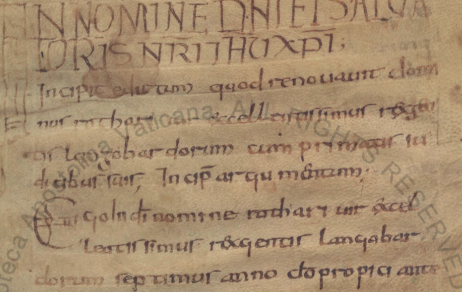 IN NOMINE DNI EI SALVA
TORIS NRI IHU XPI;
Incipit edictum quod renouauit domi
nus rothari excellentissimus rex gen
tis langobardorum cum primatis iu
dicibus suis; Incip argumentum;
Ego in di nomine rothari uir excel
lentissimus rex gentis langobar
dorum septimus anno do propiciante
Biblioteca Apostolica Vaticana. All RIGHTS RESERVED